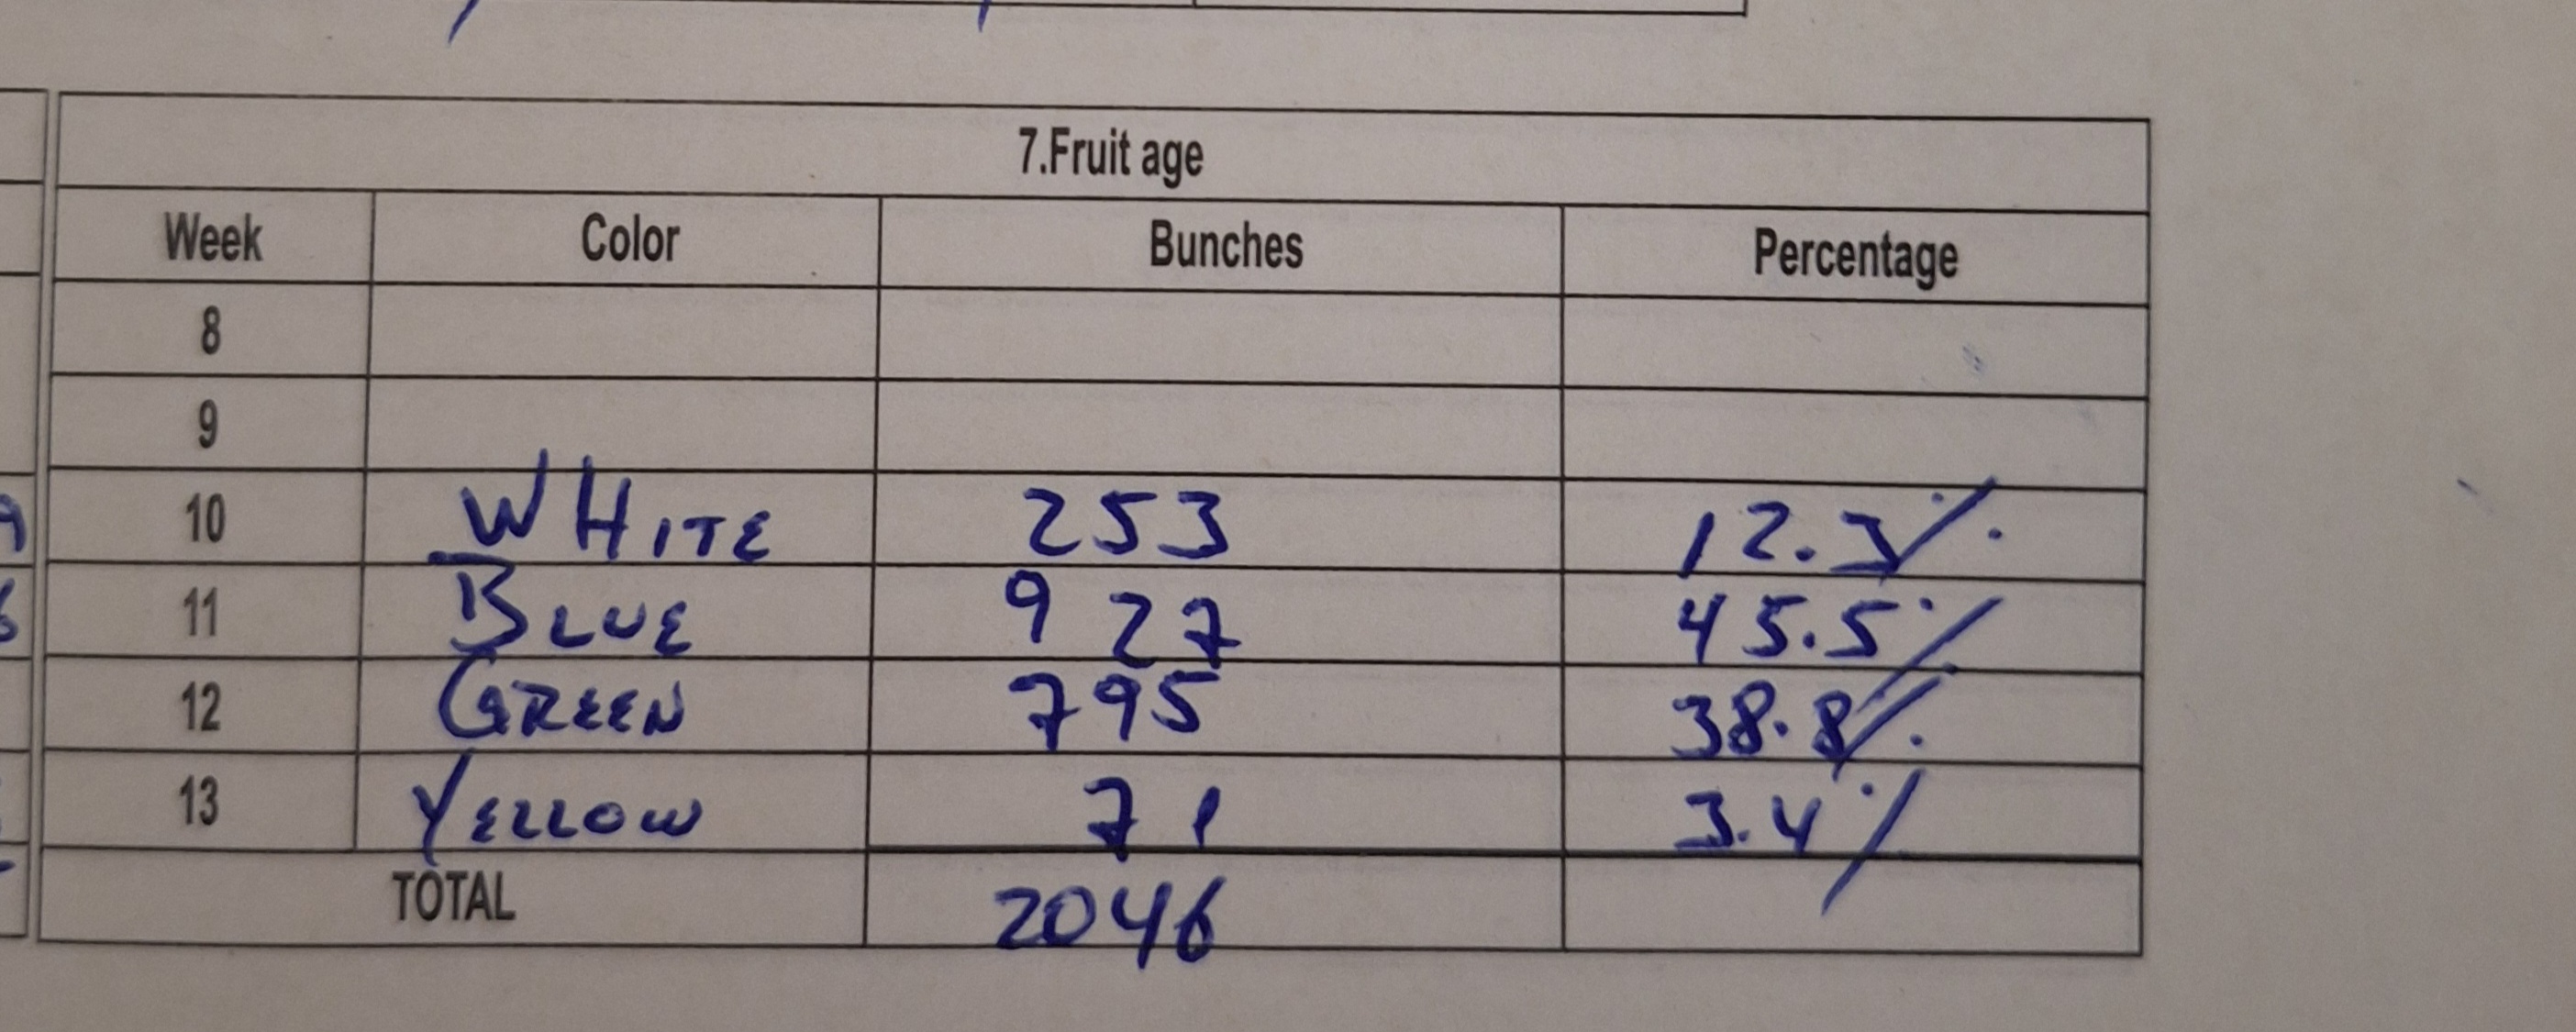 7.Fruit age
Week Color Bunches Percentage
8
9
10 WHITE 253 12.3%
11 BLUE 927 45.5%
12 GREEN 795 38.8%
13 YELLOW 71 3.4%
TOTAL 2046